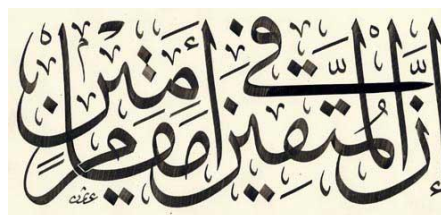 إِنَّ الْمُتَّقِينَ فِي مَقَامٍ أَمِينٍ